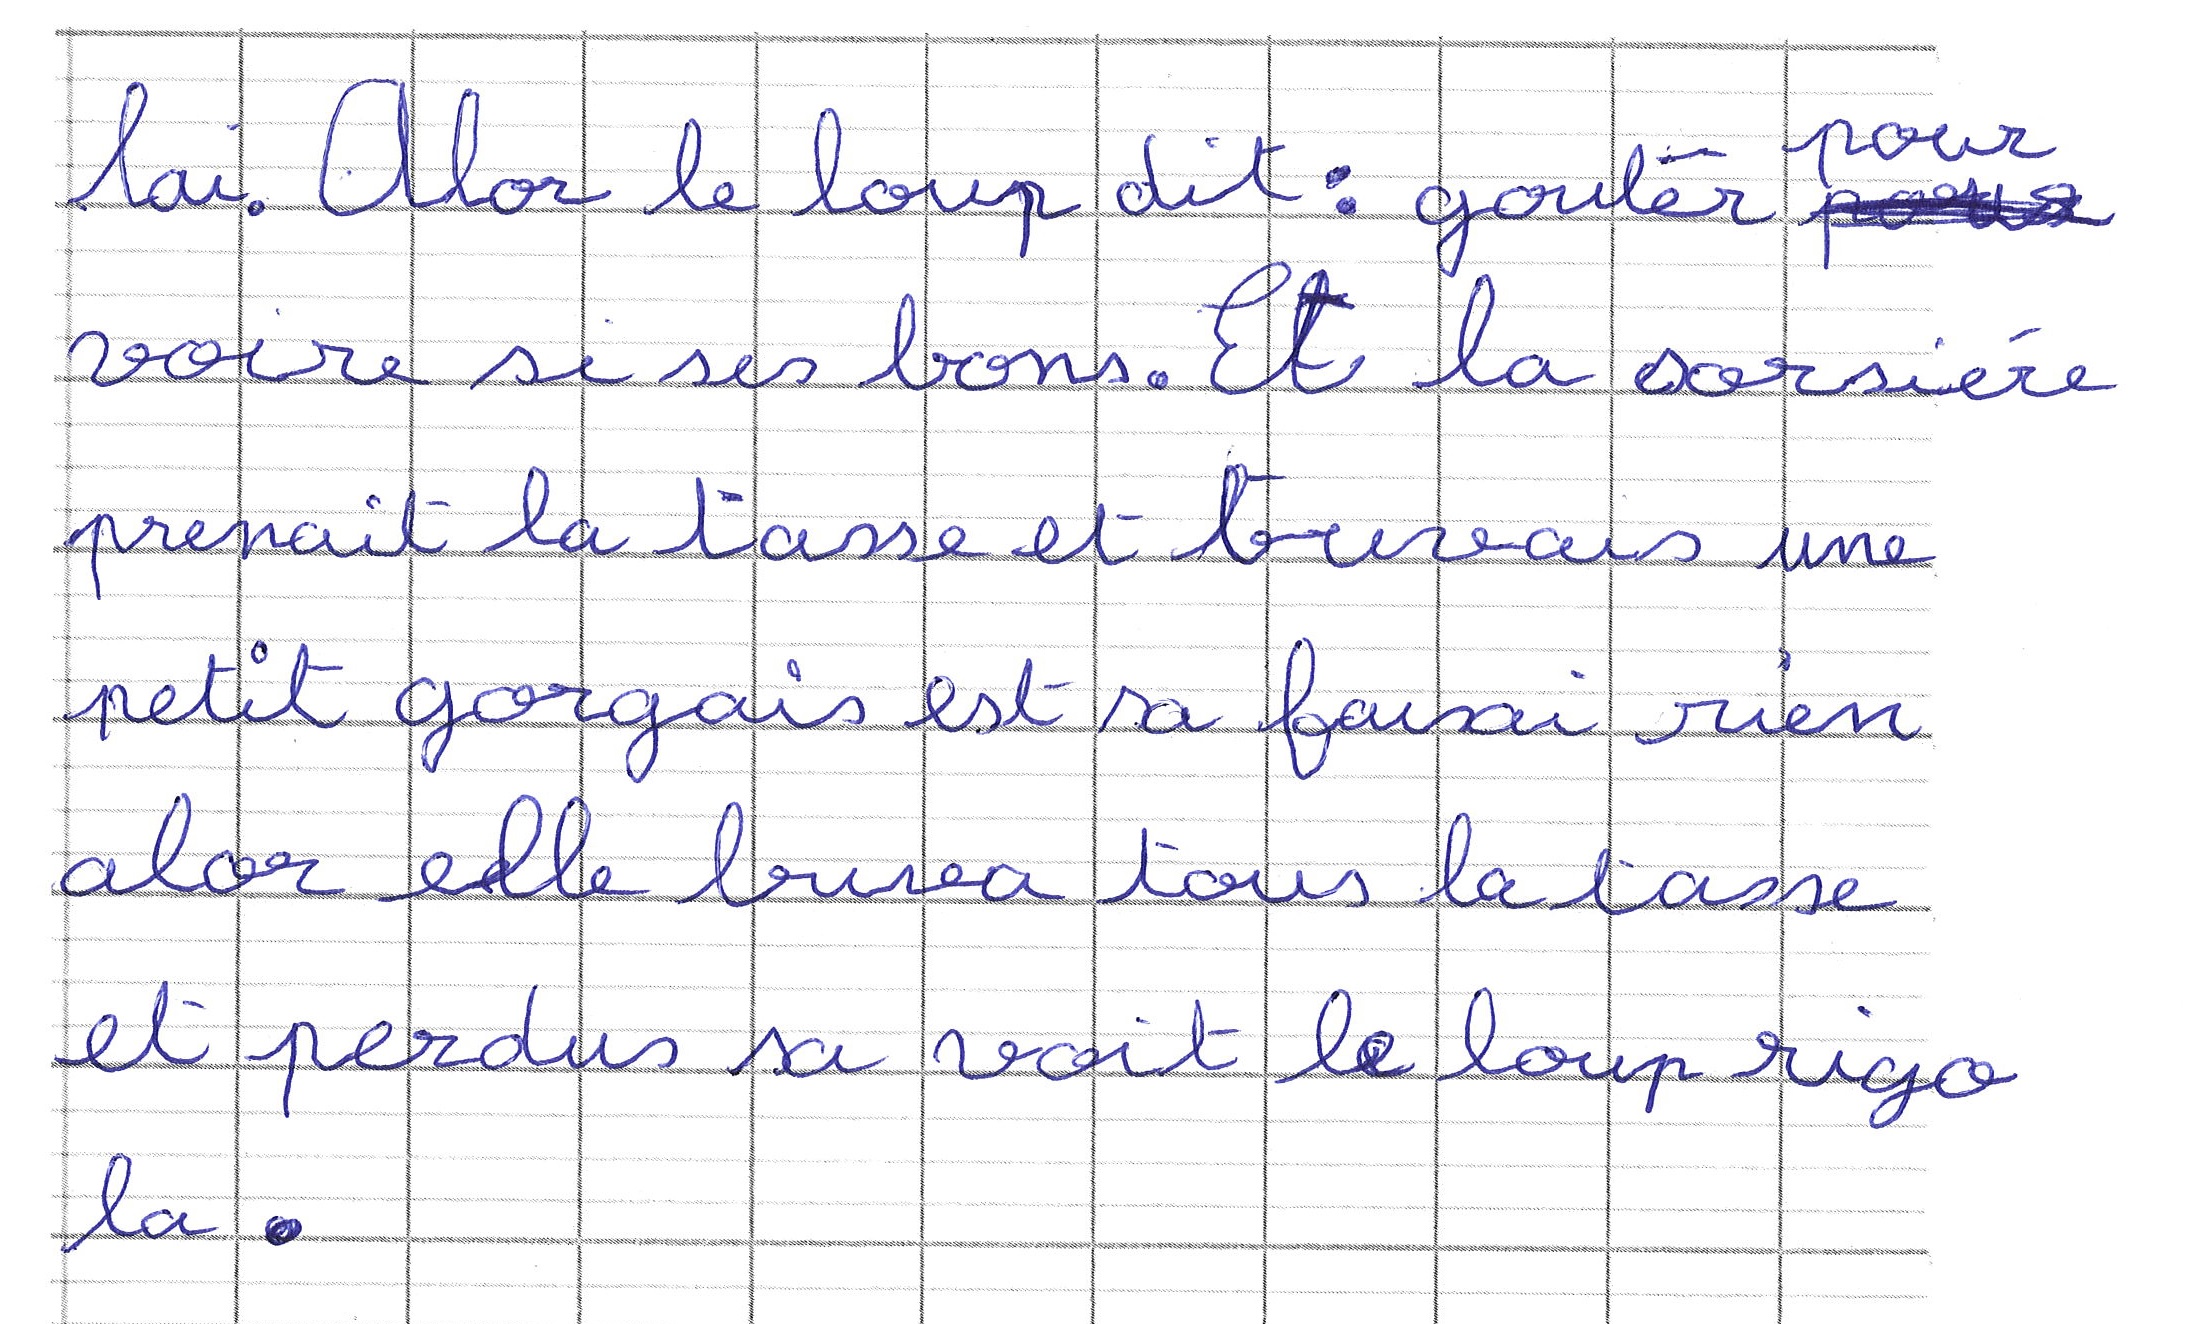 lai. Alor le loup dit : goutér pour
voire si ses bons. Et la sorsiére
prenait la tasse et buvais une
petit gorgais est sa faisai rien
alor elle buva tous la tasse
et perdus sa voit le loup rigo
la.